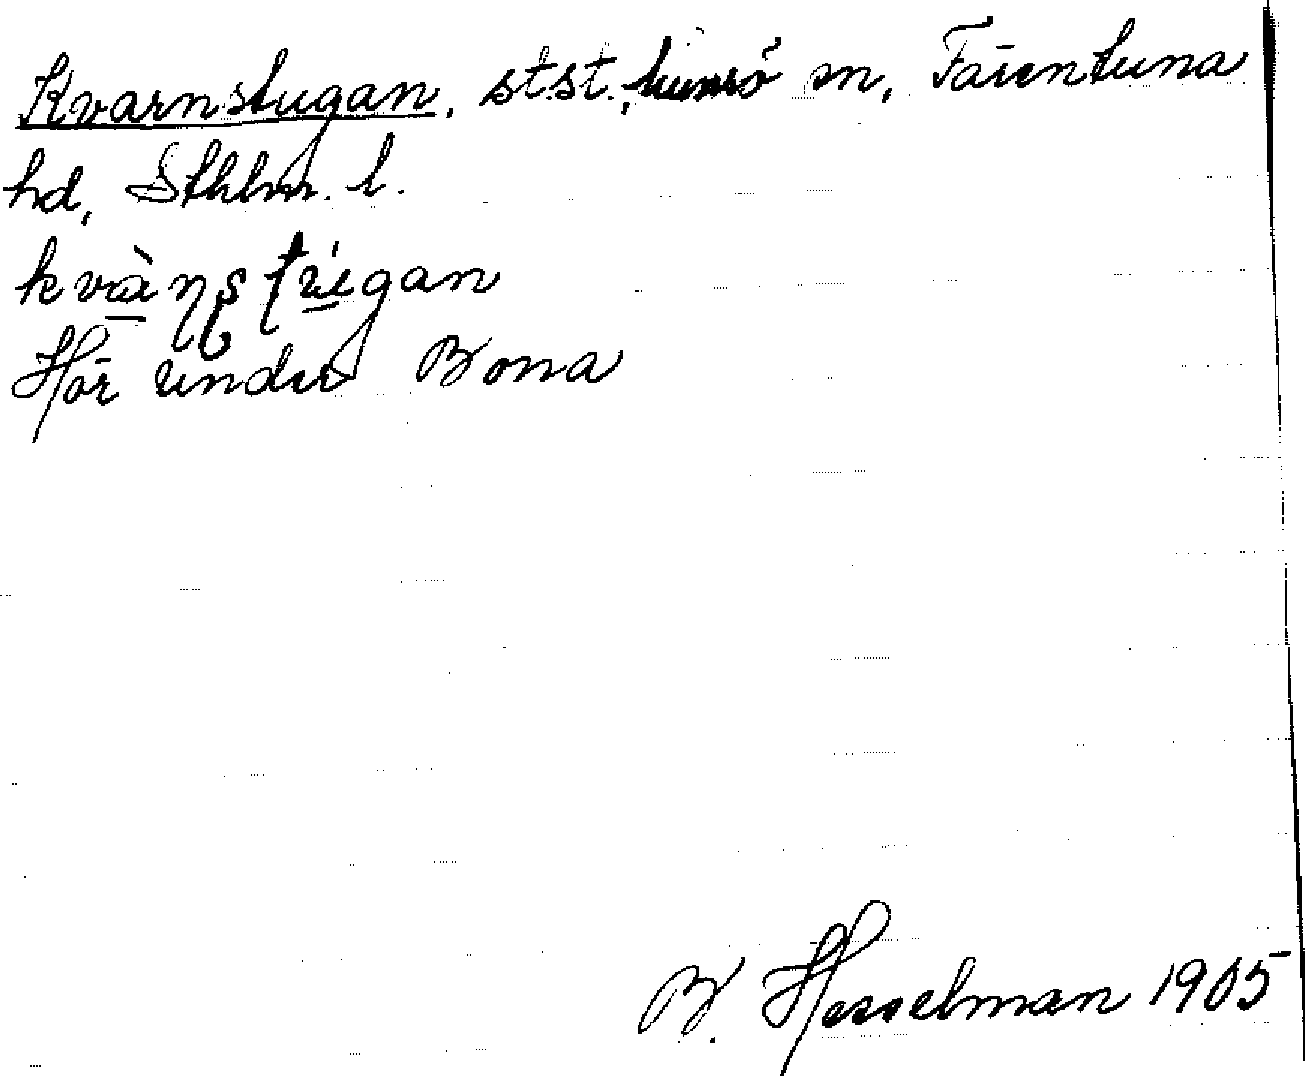 Kvarnstugan, stst., Munsö sn, Färentuna
hd, Sthlm. l.
kvàɳʂtúgan
Hör under Bona
B. Hesselman 1905